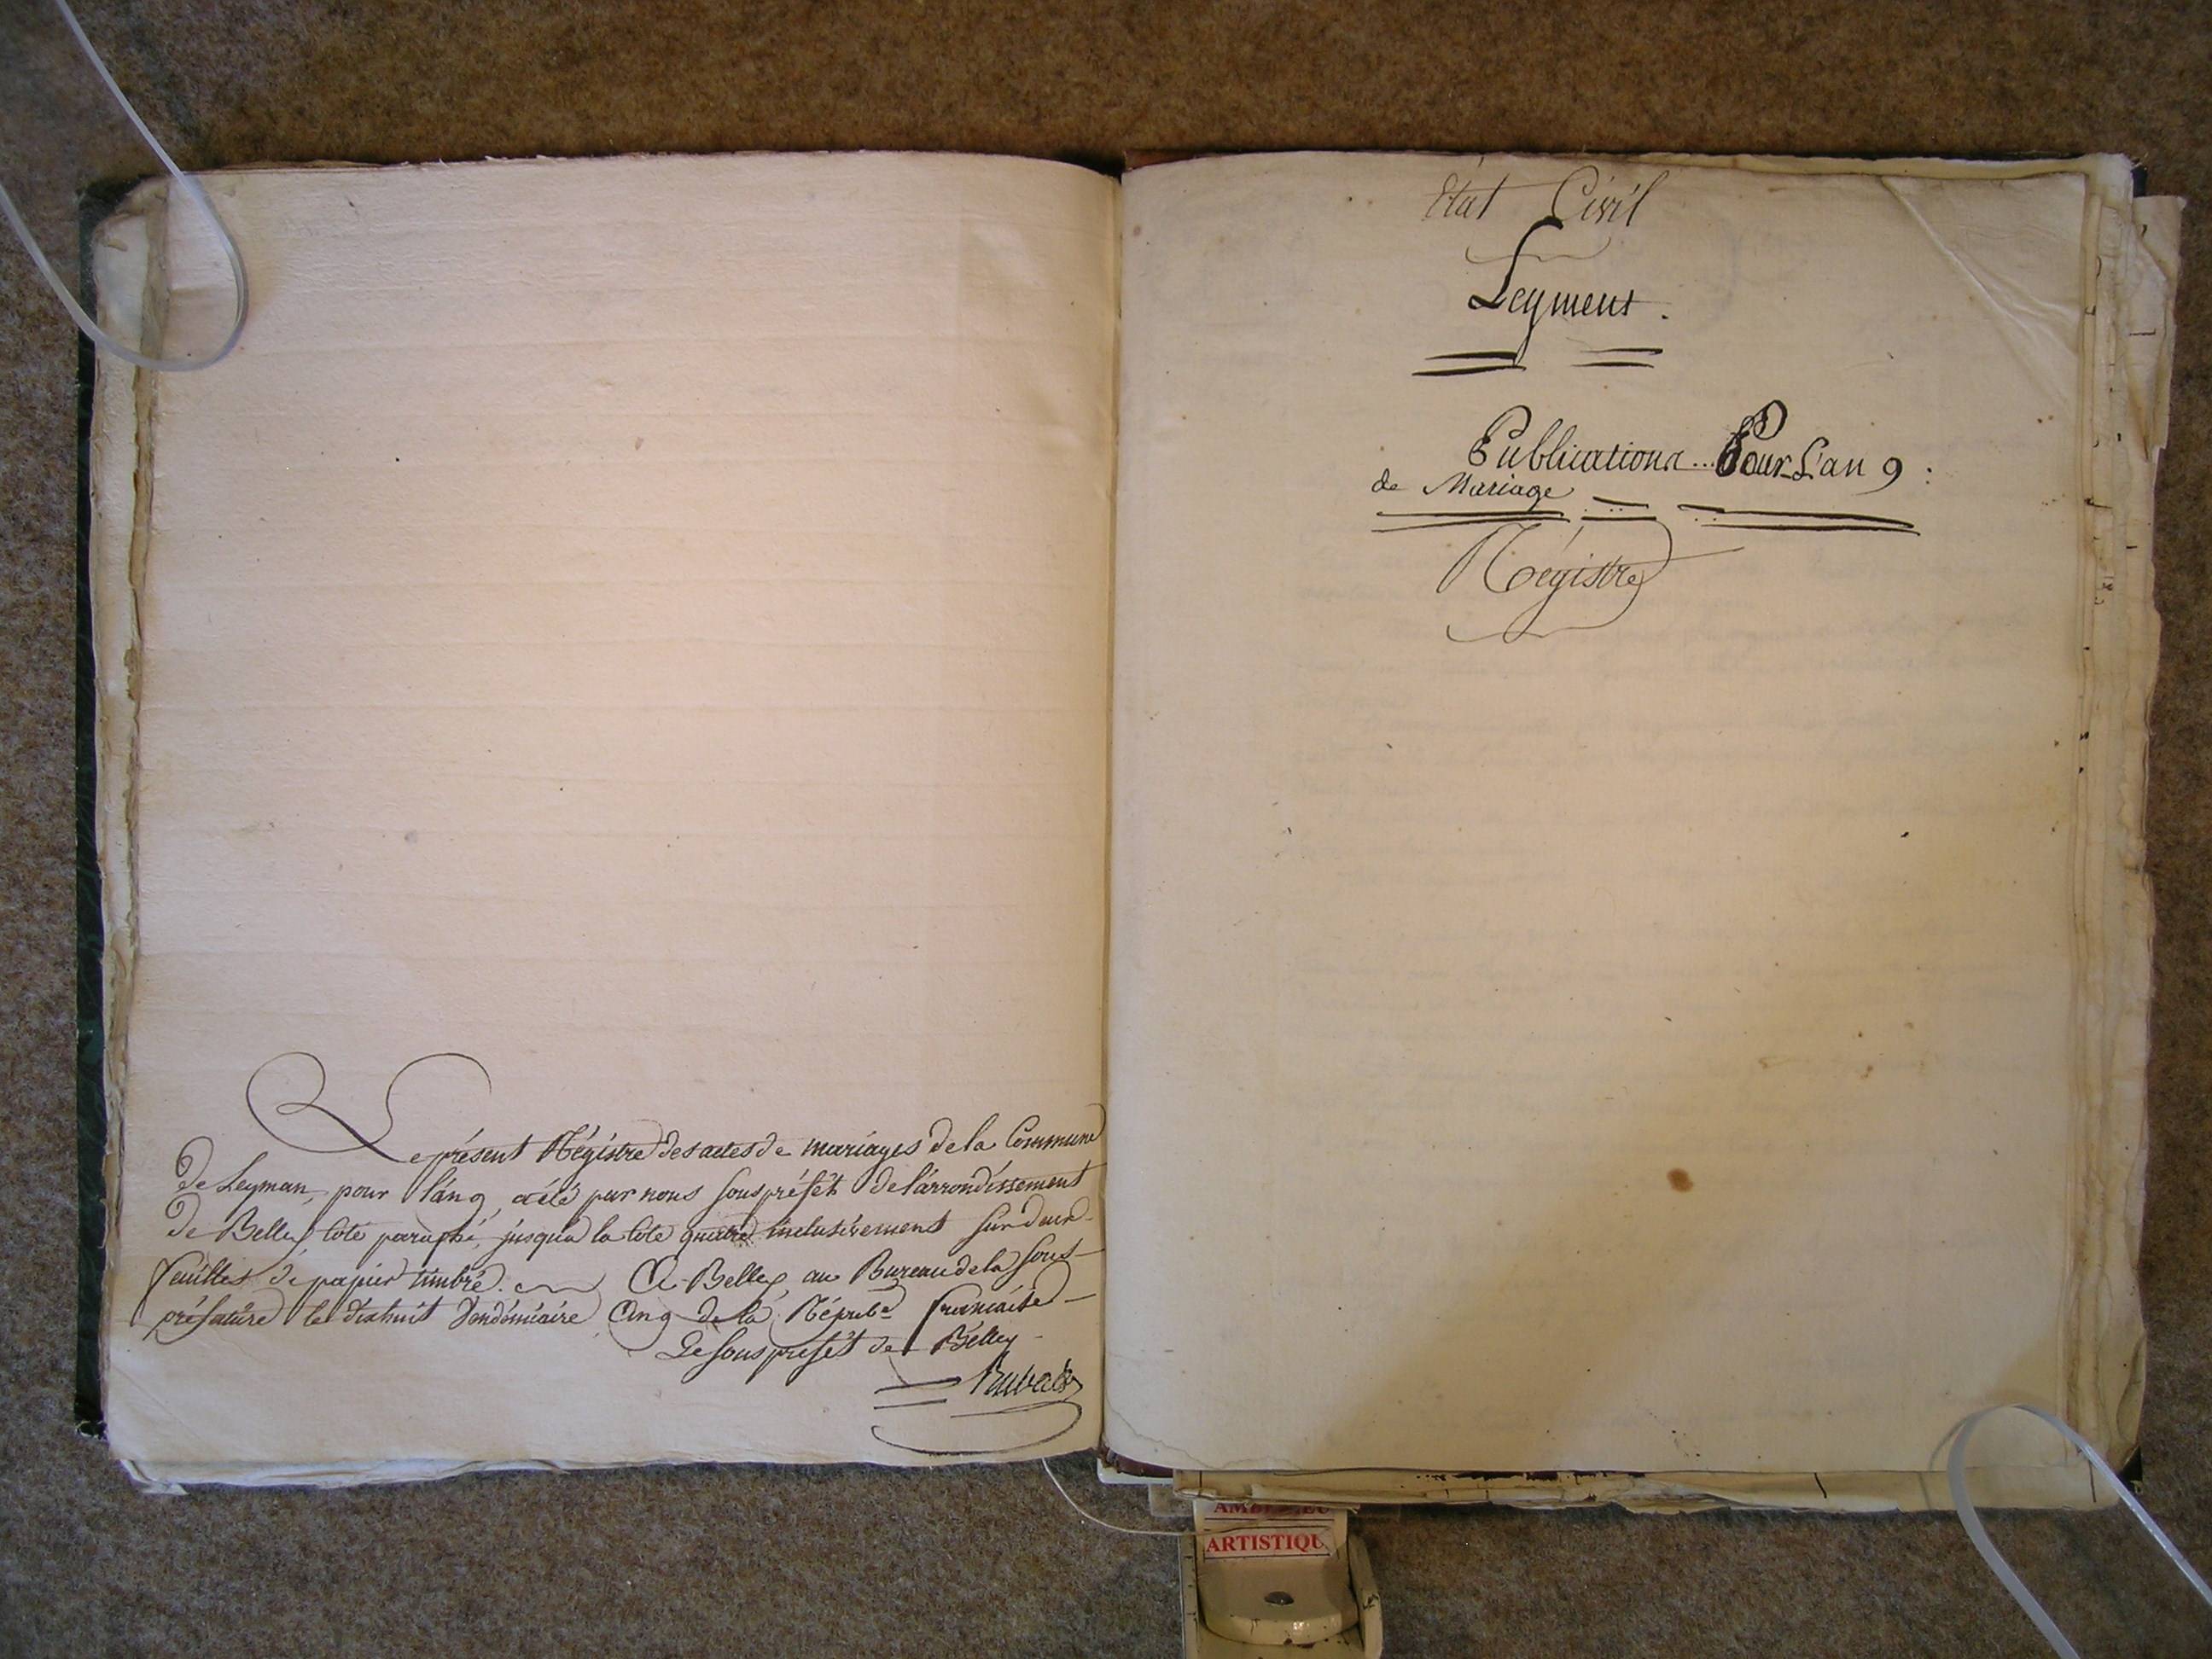 Le présent Régistre des actes de mariages de la Commune
De Leyman, pour l'an 9, a été par nous sous préfét de l'arrondissement
De Belley coté paraphé, jusqu'a la cote quatre inclusivement sur deux
feuilles de papier timbré. A Belley, au Bureau de la sous
préfature le dixhuit Vendémiaire an 9 de la Répub.e francaise
Le sous préfét de Belley
Etat Civil
Leyment.
Publications... Pour L'an 9 :
de Mariage
Régistre
ARTISTIQU